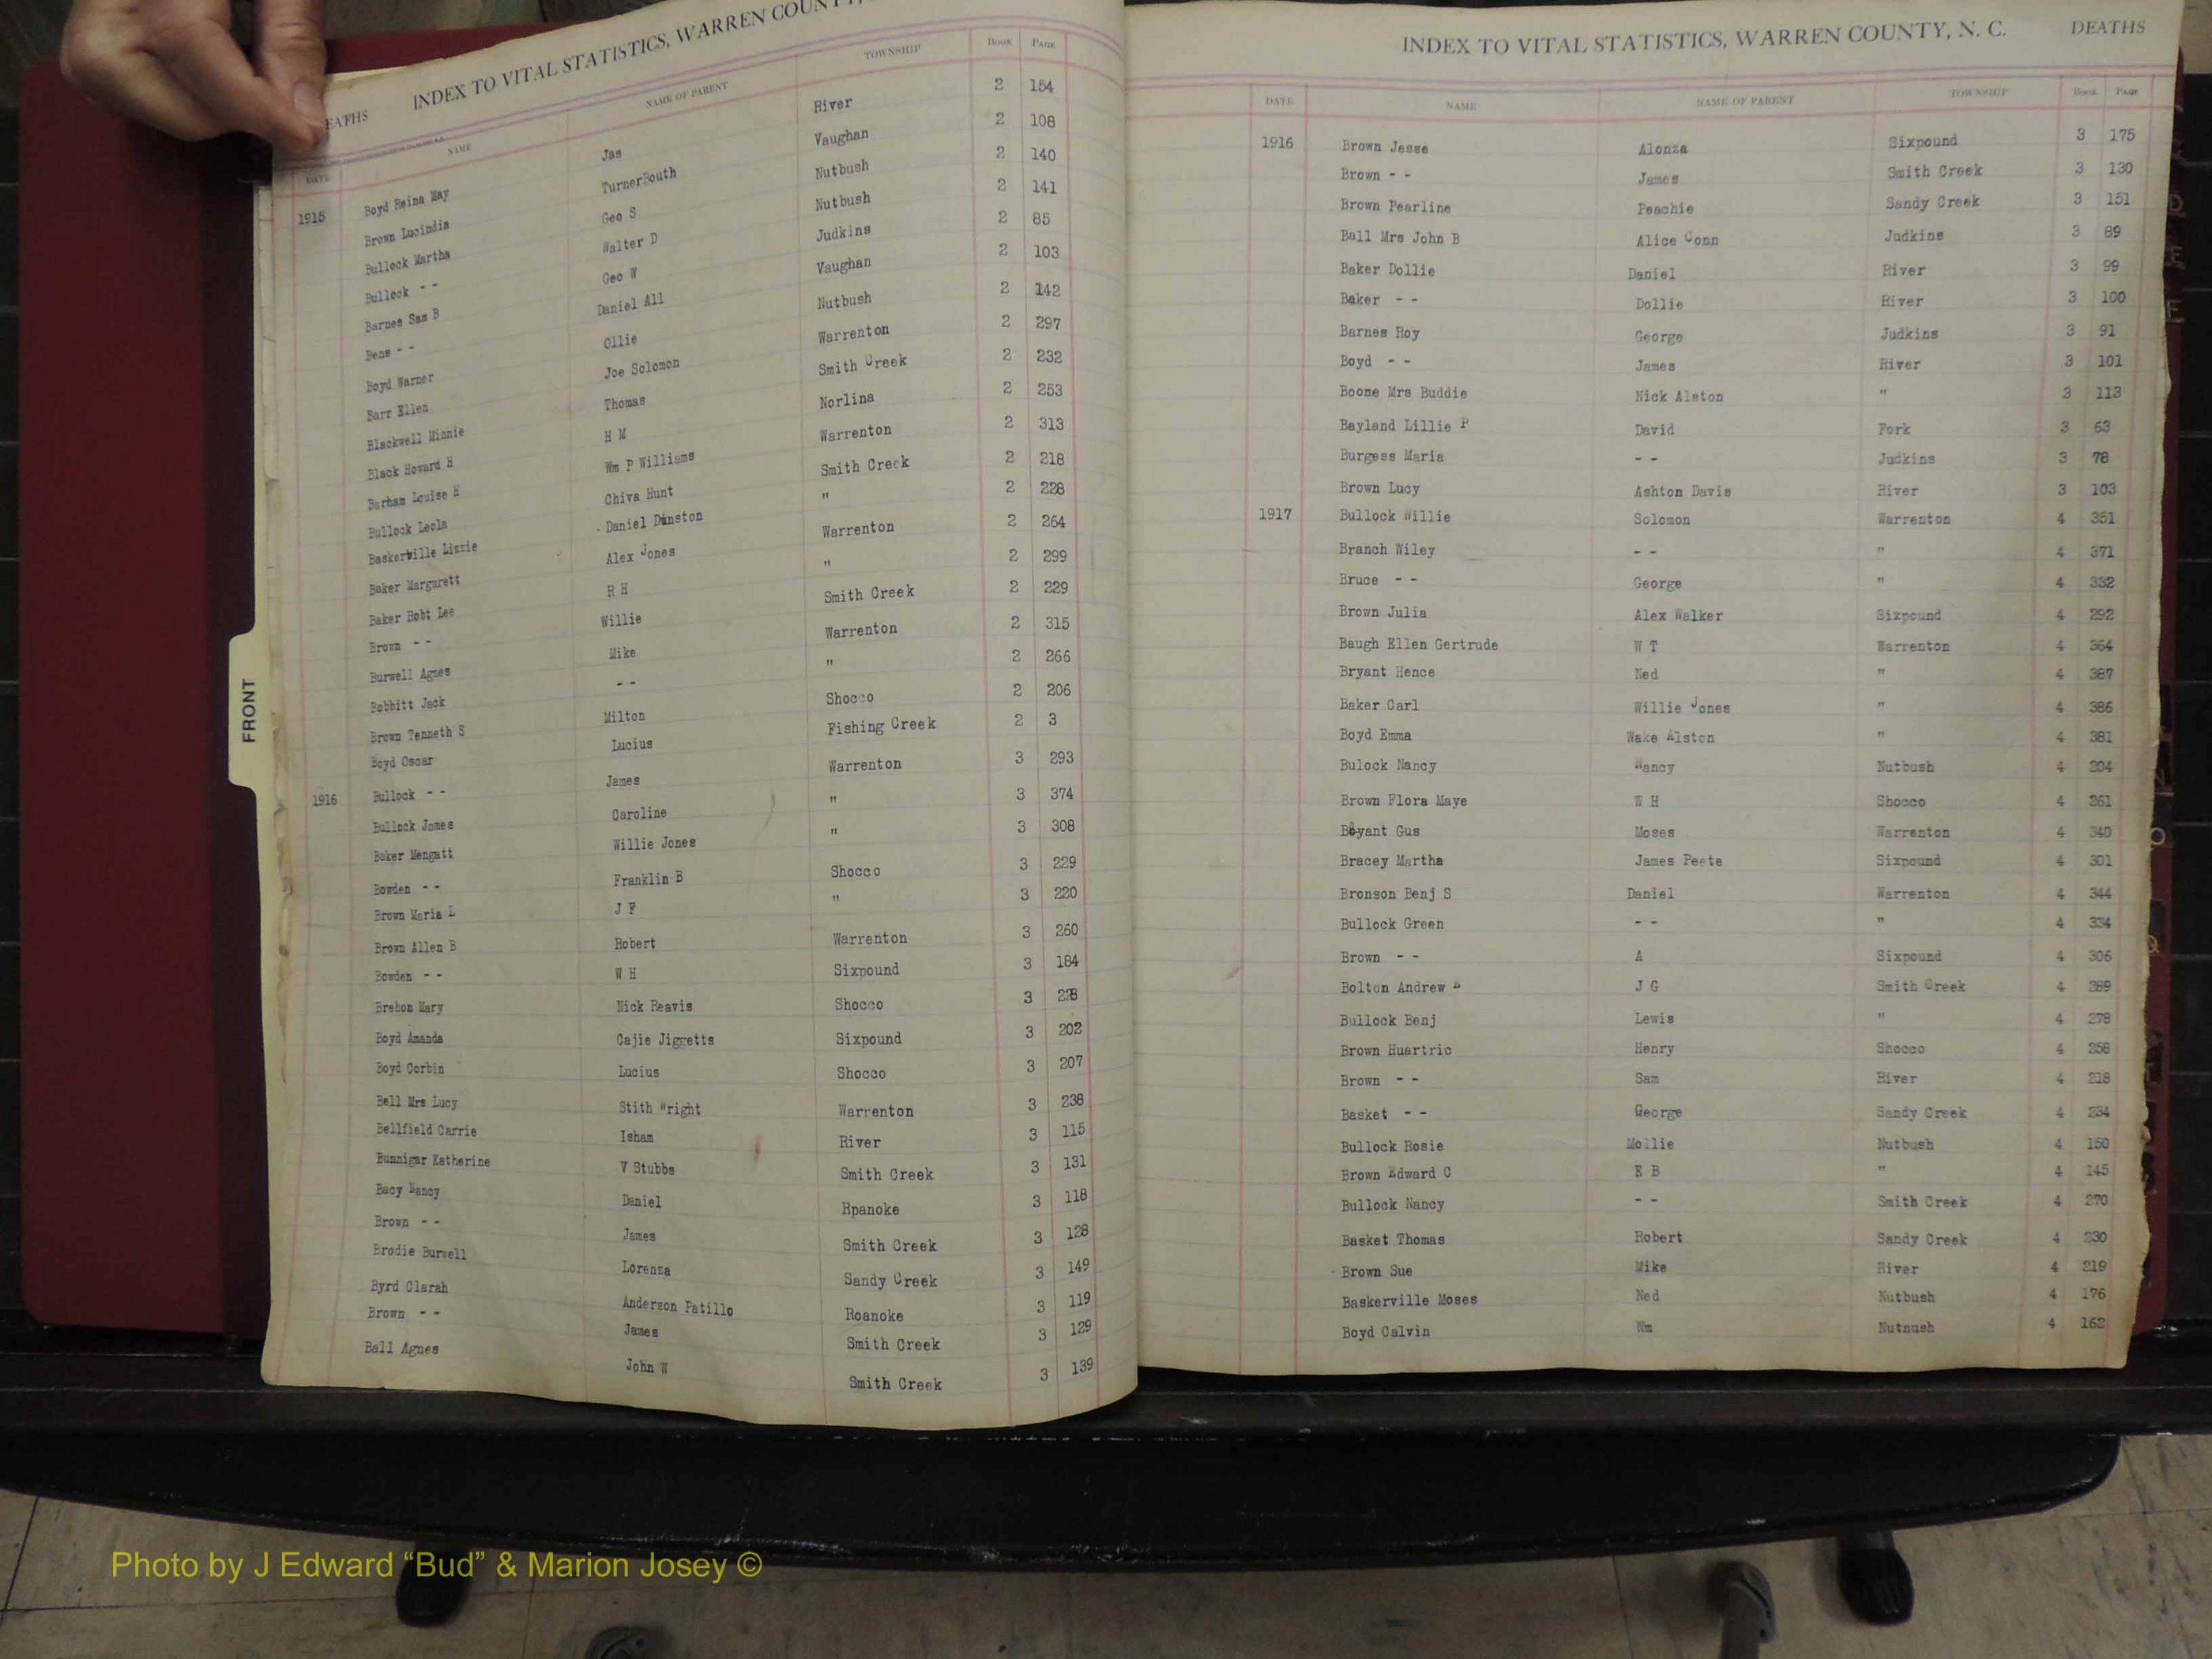 EATHS INDEX TO VITAL STATISTICS, WARREN COUNTY,
DATE NAME NAME OF PARENT TOWNSHIP BOOK PAGE
1915 Boyd Reina May Jas River 2 154
Brown Lucindia TurnerBouth Vaughan 2 108
Bullock Martha Geo S Nutbush 2 140
Bullock - - Walter D Nutbush 2 141
Barnes Sam B Geo W Judkins 2 85
Bens - - Daniel All Vaughan 2 103
Boyd Warner Ollie Nutbush 2 142
Barr Ellen Joe Solomon Warrenton 2 297
Blackwell Minnie Thomas Smith Creek 2 232
Black Howard H H M Norlina 2 253
Barham Louise H Wm P Williams Warrenton 2 313
Bullock Leola Chiva Hunt Smith Creek 2 218
Baskerville Lizzie Daniel Dunston " 2 228
Baker Margarett Alex Jones Warrenton 2 264
Baker Robt Lee R H " 2 299
Brown - - Willie Smith Creek 2 229
Burwell Agnes Mike Warrenton 2 315
Bobbitt Jack - - " 2 266
Brown Tenneth S Milton Shocco 2 206
Boyd Oscar Lucius Fishing Creek 2 3
1916 Bullock - - James Warrenton 3 293
Bullock James Caroline " 3 374
Baker Mengatt Willie Jones " 3 308
Bowden - - Franklin B Shocco 3 229
Brown Maria L J F " 3 220
Brown Allen B Robert Warrenton 3 260
Bowden - - W H Sixpound 3 184
Brehon Mary Nick Reavis Shocco 3 228
Boyd Amanda Cajie Jiggetts Sixpound 3 202
Boyd Corbin Lucius Shocco 3 207
Bell Mrs Lucy Stith Wright Warrenton 3 238
Bellfield Carrie Isham River 3 115
Bunnigar Katherine V Stubbs Smith Creek 3 131
Bacy Nancy Daniel Rpanoke 3 118
Brown - - James Smith Creek 3 128
Brodie Burwell Lorenza Sandy Creek 3 149
Byrd Clarah Anderson Patillo Roanoke 3 119
Brown - - James Smith Creek 3 129
Ball Agnes John W Smith Creek 3 139
FRONT
INDEX TO VITAL STATISTICS, WARREN COUNTY, N. C. DEATHS
DATE NAME NAME OF PARENT TOWNSHIP BOOK PAGE
1916 Brown Jesse Alonza Sixpound 3 175
Brown - - James Smith Creek 3 130
Brown Pearline Peachie Sandy Creek 3 151
Ball Mrs John B Alice Conn Judkins 3 89
Baker Dollie Daniel River 3 99
Baker - - Dollie River 3 100
Barnes Roy George Judkins 3 91
Boyd - - James River 3 101
Boone Mrs Buddie Nick Alston " 3 113
Bayland Lillie P David Fork 3 63
Burgess Maria - - Judkins 3 78
Brown Lucy Ashton Davis River 3 103
1917 Bullock Willie Solomon Warrenton 4 351
Branch Wiley - - " 4 371
Bruce - - George " 4 332
Brown Julia Alex Walker Sixpound 4 292
Baugh Ellen Gertrude W T Warrenton 4 364
Bryant Hence Ned " 4 387
Baker Carl Willie Jones " 4 386
Boyd Emma Wake Alston " 4 381
Bulock Nancy Nancy Nutbush 4 204
Brown Flora Maye W H Shocco 4 261
Bryant Gus Moses Warrenton 4 340
Bracey Martha James Peete Sixpound 4 301
Bronson Benj S Daniel Warrenton 4 344
Bullock Green - - " 4 334
Brown - - A Sixpound 4 306
Bolton Andrew J G Smith Creek 4 289
Bullock Benj Lewis " 4 278
Brown Huartric Henry Shocco 4 258
Brown - - Sam River 4 218
Basket - - George Sandy Creek 4 234
Bullock Rosie Mollie Nutbush 4 150
Brown Edward C E B " 4 145
Bullock Nancy - - Smith Creek 4 270
Basket Thomas Robert Sandy Creek 4 230
Brown Sue Mike River 4 219
Baskerville Moses Ned Nutbush 4 176
Boyd Calvin Wm Nutnush 4 162
Photo by J Edward “Bud” & Marion Josey ©